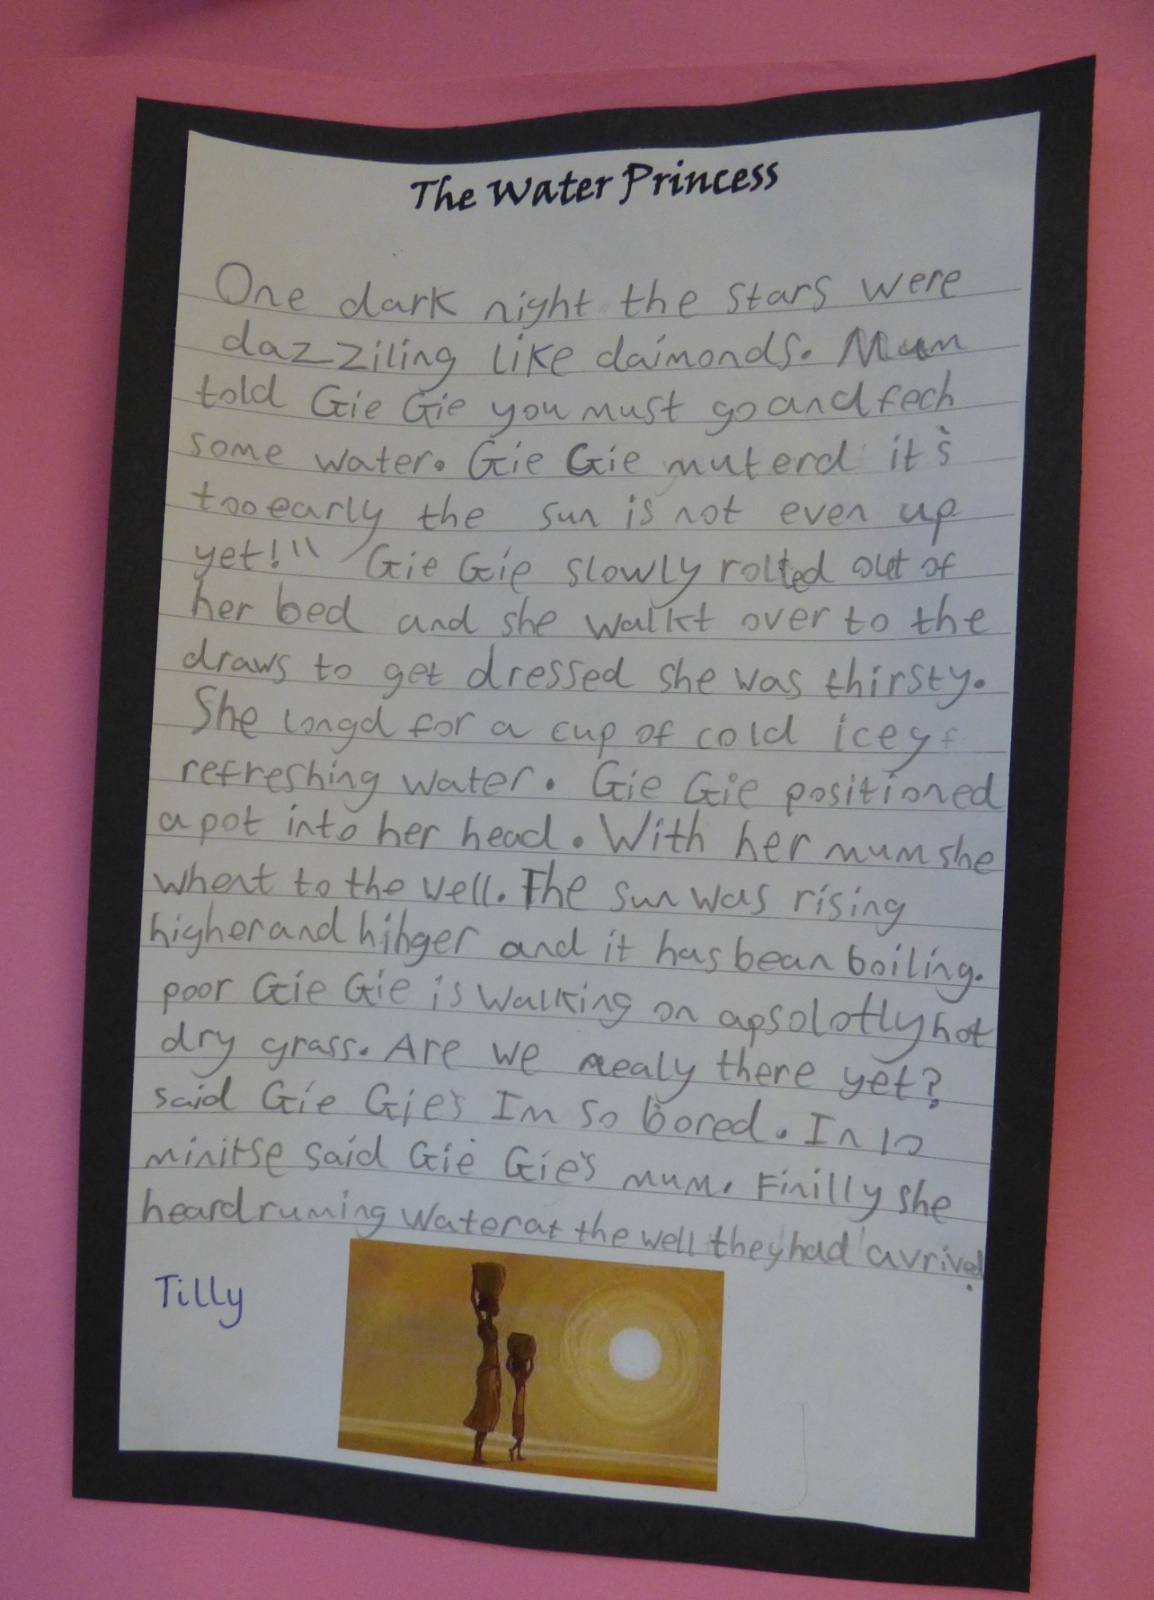 The Water Princess
One dark night the stars were
dazziling like daimonds. Mum
told Gie Gie you must go and fech
some water. Gie Gie muterd it's
too early the sun is not even up
yet!" Gie Gie slowly rolled out of
her bed and she walkt over to the
draws to get dressed she was thirsty.
She longd for a cup of cold icey
refreshing water. Gie Gie positioned
a pot into her head. With her mum she
whent to the well. The sun was rising
higher and hihger and it has bean boiling.
poor Gie Gie is walking on apsolotly hot
dry grass. Are we nealy there yet?
said Gie Gie's Im so bored. In 10
minitse said Gie Gie's mum. Finilly she
heard runing water at the well they had avrived.
Tilly